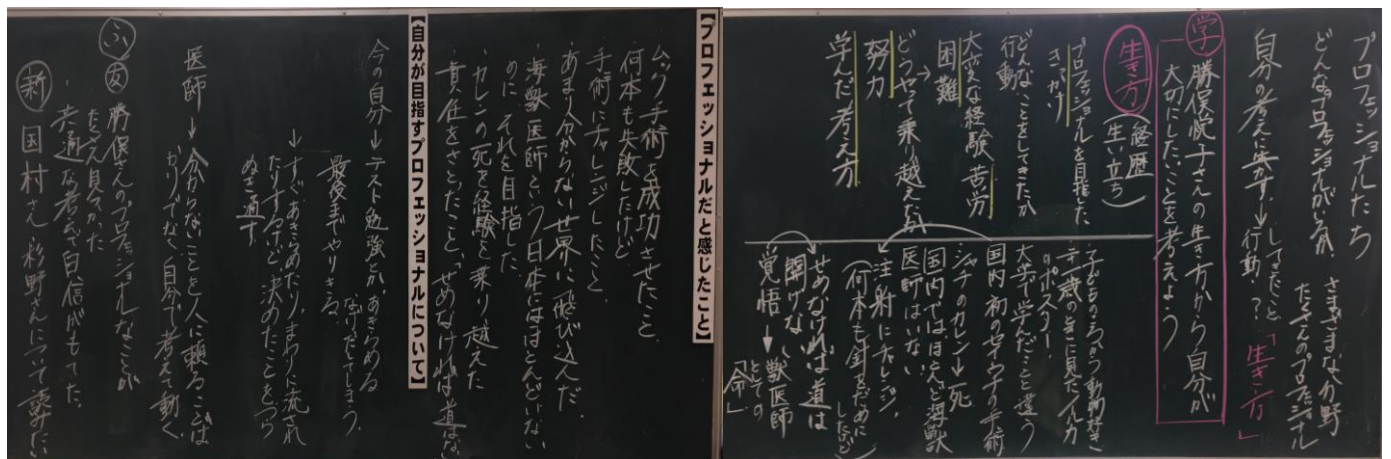 プロフェッショナルたち
どんなプロフェッショナルがいるか
さまざまな分野
たくさんのプロフェッショナル
自分の考えに生かす。
→してきたこと
行動
?
「生き方」
学
勝俣悦子さんの生き方から自分が
大切にしたいことを考えよう
生き方
(経歴
生い立ち)
プロフェッショナルを目指した
きっかけ
どんなことをしてきたか
行動
大変な経験 苦労
困難
→どうやって乗り越えたか
努力
学んだ考え方
子どものころから動物好き
のポスター
大学で学んだことと違う
国内初のセイウチの手術
シャチのカレン→死
国内ではほとんど海獣
医師はいない
注射にチャレンジ
(何本も針をだめに
したけど)
せめなければ道は
開けない
覚悟→獣医師
としての
「命」
【プロフェッショナルだと感じたこと】
ムック手術を成功させたこと
何本も失敗したけど
手術にチャレンジしたこと
あまり分からない世界に飛び込んだ
海獣医師という日本にほとんどいない
のに それを目指した
カレンの死を経験し乗り越えた
責任をさとったこと、せめなければ道はない
【自分が目指すプロフェッショナルについて】
今の自分→テスト勉強とか、あきらめる
なげだしてしまう
最後までやりきる
→すぐあきらめたり、まわりに流され
たりするけど 決めたことをつら
ぬき通す
医師→分からないことを人に頼ることば
かりでなく 自分で考えて動く
ふ
友
勝俣さんのプロフェッショナルなことが
たくさん見つかった
共通な考えで自信がもてた
新
国村さん 杉野さんについて読みたい